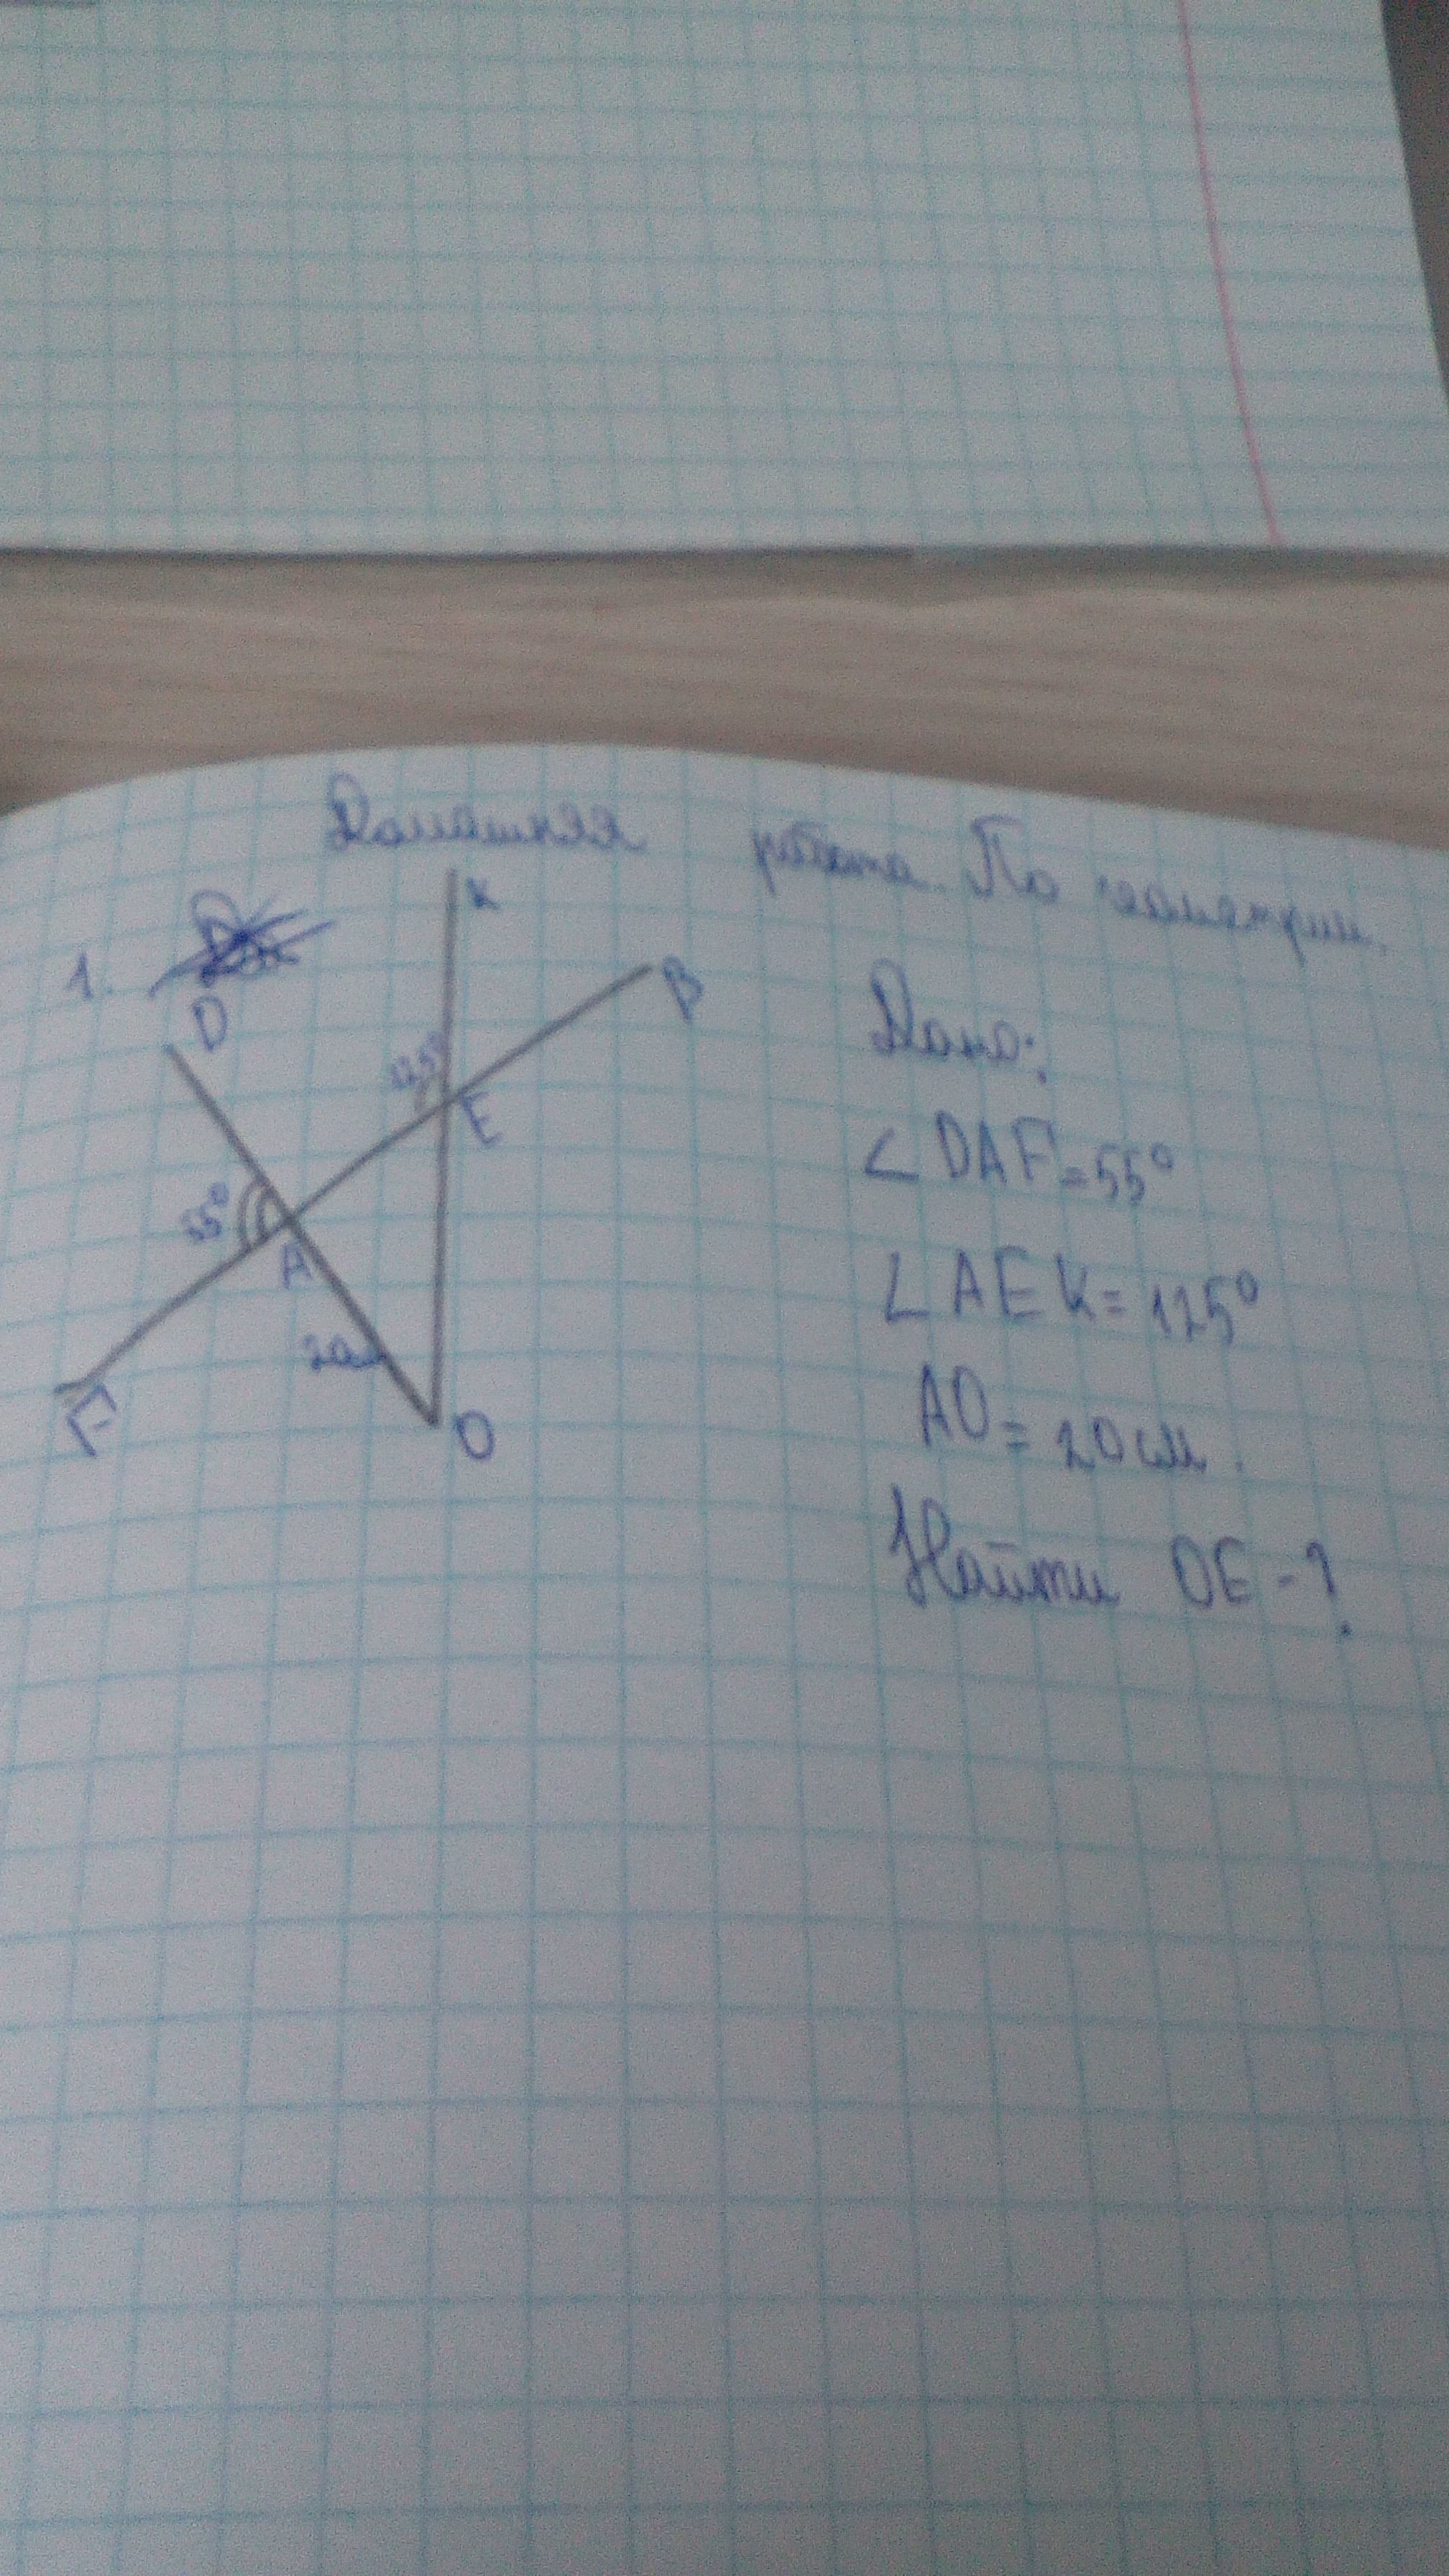 Домашняя работа. По геометрии.
1.
D
K
B
125°
E
55°
A
20
F
O
Дано:
∠DAF=55°
∠AEK=125°
AO=20см.
Найти OE-?